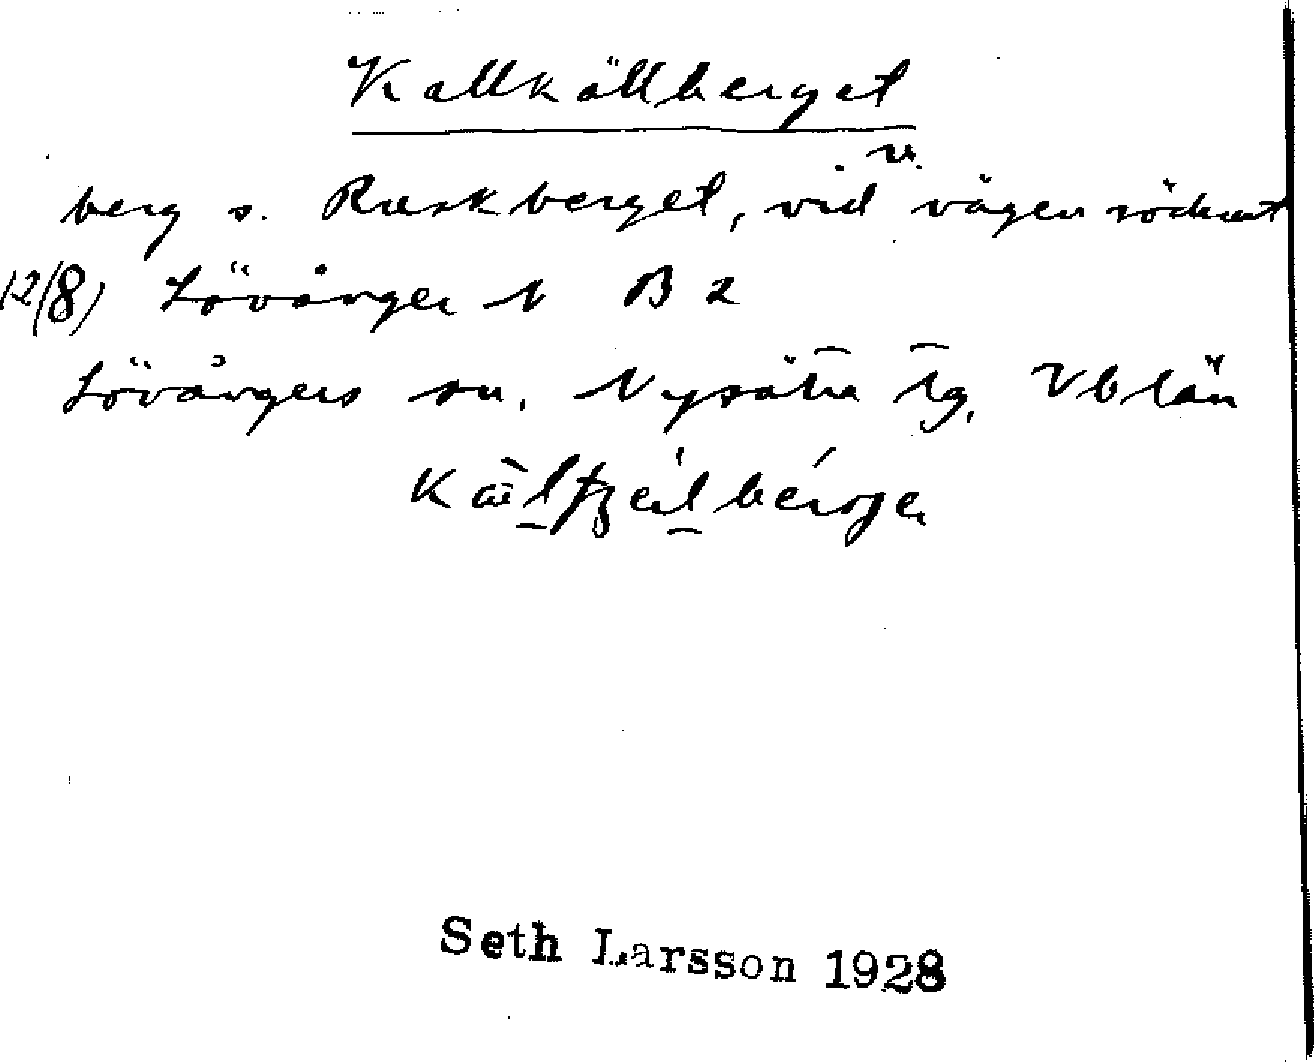 Kallkällberget
berg s. Ruskberget, vid v. vägen söderut
12/8) Lövånger N B 2
Lövångers sn. Nysätra tg, Vb län
Seth Larsson 1928